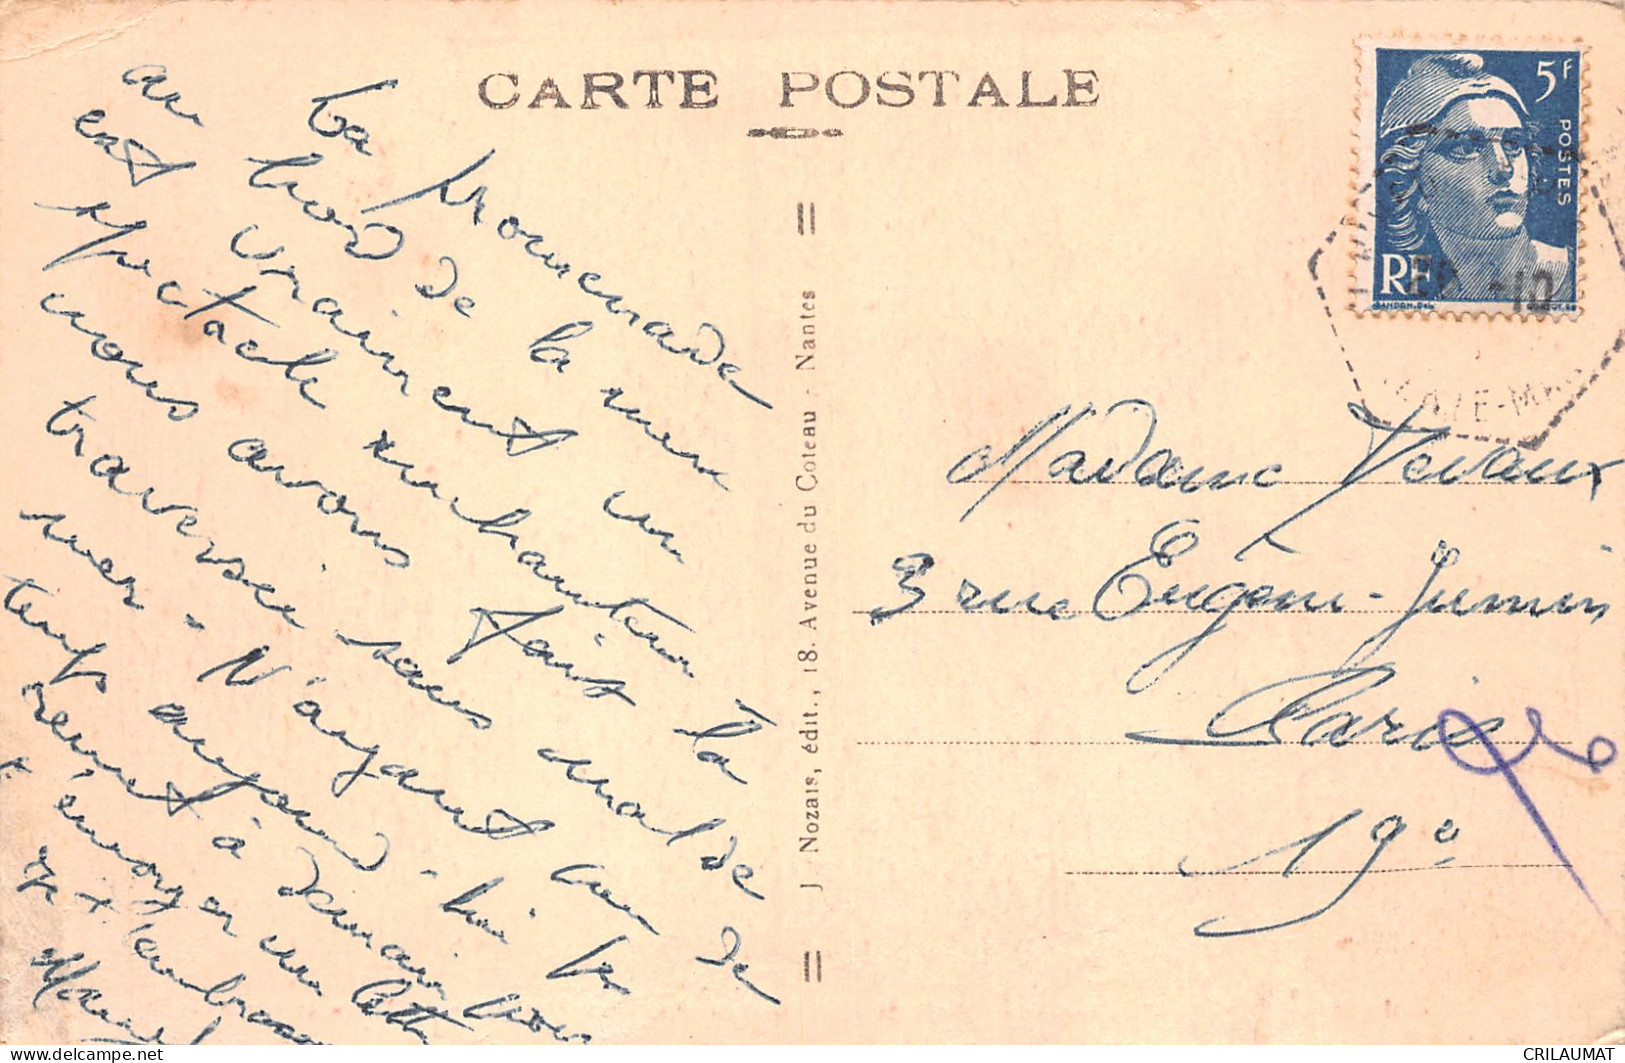 CARTE POSTALE
La promenade
au bord de la mer
est vraiment un
spectacle enchanteur
nous avons fait la
traversée sans mal de
mer. N'ayant eu
temps aujourd'hui je
remet à demain pour
t'envoyer une lettre
on t'embrasse
J. Nozais, édit., 18. Avenue du Coteau - Nantes
5F
POSTES
RF
GANDON
-10
Madame Devaux
3 rue Eugène-Jumin
Paris
19e
CRILAUMAT